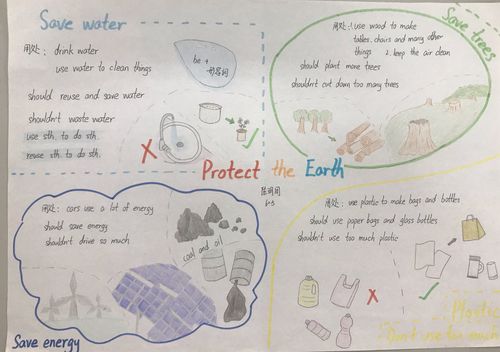 Save water
用处: drink water
use water to clean things
should reuse and save water
shouldn't waste water
use sth. to do sth.
reuse sth. to do sth.
be +
形容词
Save trees
用处: 1. use wood to make
tables, chairs and many other
things 2. keep the air clean
should plant more trees
shouldn't cut down too many trees
Protect the Earth
6-3
用处: cars use a lot of energy
should save energy
shouldn't drive so much
coal and oil
Save energy
用处: use plastic to make bags and bottles
should use paper bags and glass bottles
shouldn't use too much plastic
Plastic
Don't use too much